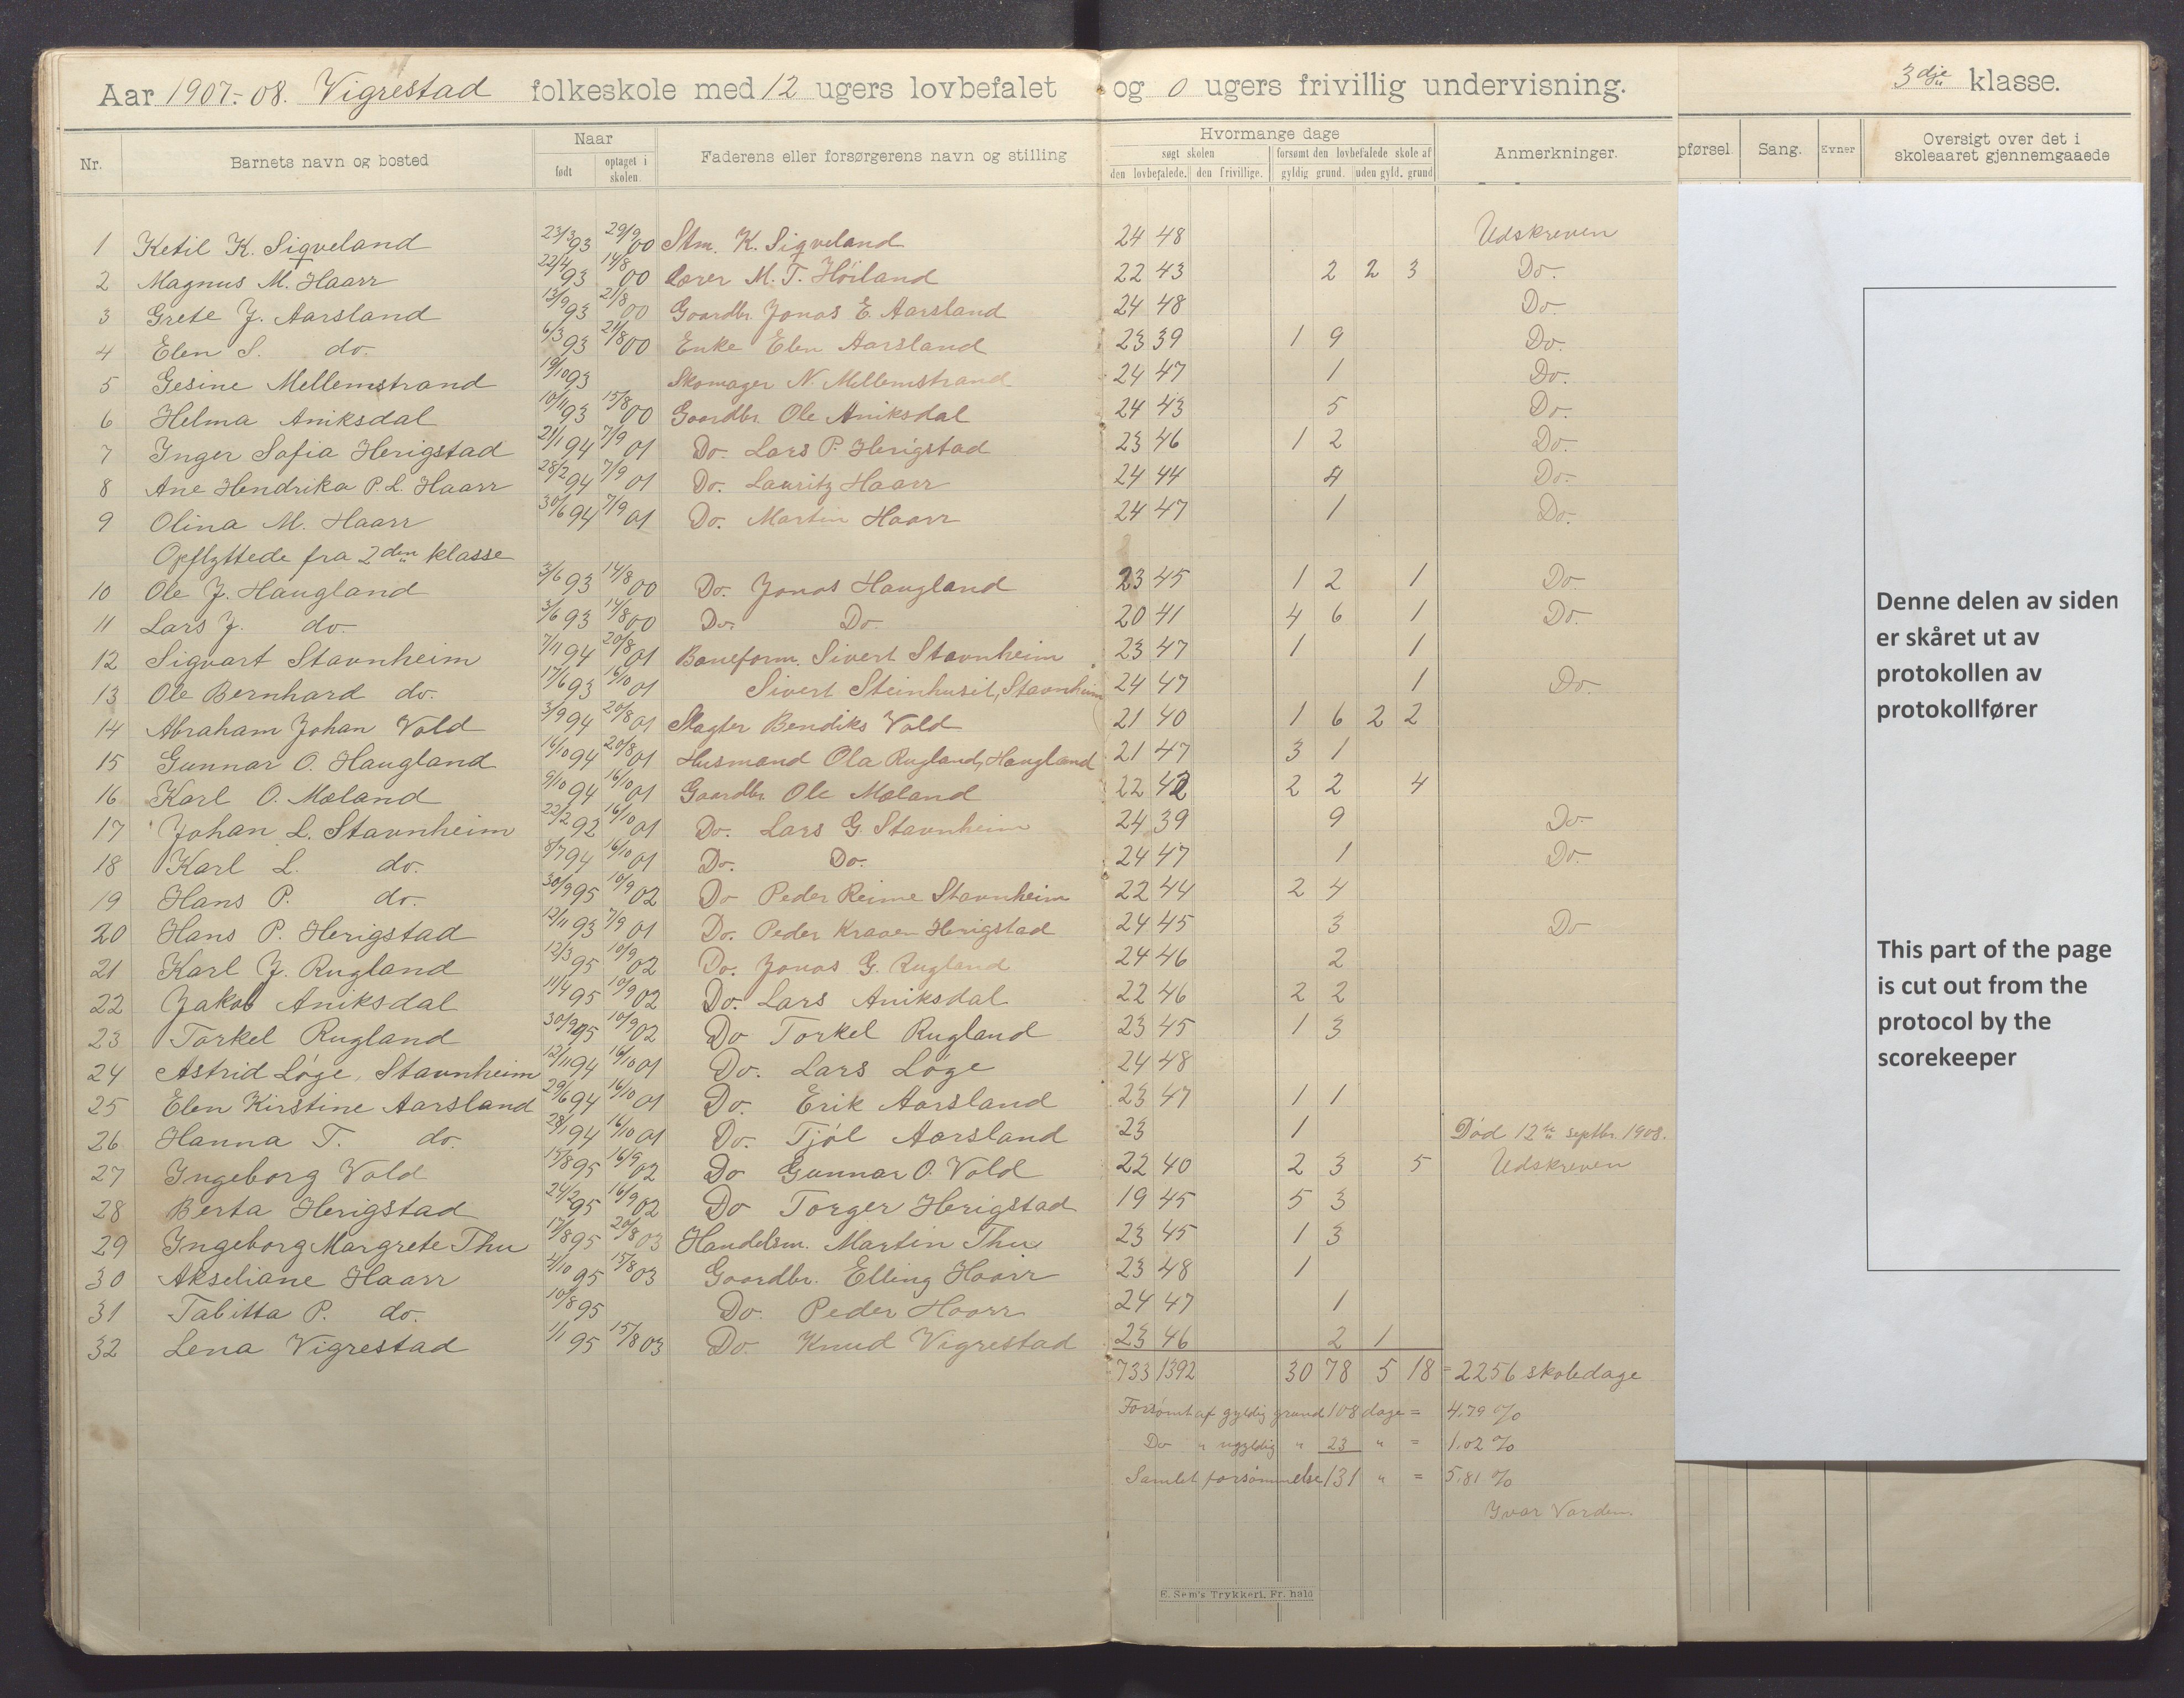 Aar 1907-08. Vigrestad folkeskole med 12 ugers lovbefalet og 0 ugers frivillig undervisning. 3dje klasse.
Nr. Barnets navn og bosted Naar født optaget i skolen. Faderens eller forsørgerens navn og stilling Hvormange dage søgt skolen den lovbefalede. den frivillige. forsømt den lovbefalede skole af gyldig grund. uden gyld. grund Anmerkninger. pførsel. Sang. Evner Oversigt over det i skoleaaret gjennemgaaede
1 Ketil K. Sigveland 23/3 93 29/9 00 Stm. K. Sigveland 24 48 Udskreven
2 Magnus M. Haarr 22/4 93 14/8 00 Lærer M. T. Høiland 22 43 2 2 3 Do.
3 Grete J. Aarsland 13/9 93 21/8 00 Gaardbr. Jonas E. Aarsland 24 48 Do.
4 Elen S. do. 6/3 93 21/8 00 Enke Elen Aarsland 23 39 1 9 Do.
5 Gesine Mellemstrand 19/10 93 Skomager N. Mellemstrand 24 47 1 Do.
6 Helma Aniksdal 10/11 93 15/8 00 Gaardbr. Ole Aniksdal 24 43 5 Do.
7 Inger Sofia Herigstad 21/1 94 7/9 01 Do. Lars P. Herigstad 23 46 1 2 Do.
8 Ane Hendrika P. L. Haarr 28/2 94 7/9 01 Do. Lauritz Haarr 24 44 4 Do.
9 Olina M. Haarr 30/6 94 7/9 01 Do. Martin Haarr 24 47 1 Do.
Opflyttede fra 2den klasse
10 Ole J. Haugland 3/6 93 14/8 00 Do. Jonas Haugland 23 45 1 2 1 Do.
11 Lars J. do. 3/6 93 14/8 00 Do. Do. 20 41 4 6 1 Do.
12 Sigvart Stavnheim 7/11 94 20/8 01 Baneform. Sivert Stavnheim 23 47 1 1
13 Ole Bernhard do. 17/6 93 16/10 01 Sivert Steinhusit, Stavnheim 24 47 1 Do.
14 Abraham Johan Vold 3/9 94 20/8 01 Slagter Bendiks Vold 21 40 1 6 2 2
15 Gunnar O. Haugland 16/10 94 20/8 01 Husmand Ola Rugland, Haugland 21 47 3 1
16 Karl O. Mæland 9/10 94 16/10 01 Gaardbr. Ole Mæland 22 42 2 2 4
17 Johan L. Stavnheim 22/2 92 16/10 01 Do. Lars G. Stavnheim 24 39 9 Do.
18 Karl L. do. 8/7 94 16/10 01 Do. Do. 24 47 1 Do.
19 Hans P. do. 30/9 95 10/9 02 Do Peder Reime Stavnheim 22 44 2 4
20 Hans P. Herigstad 12/11 93 7/9 01 Do. Peder Kraaen Herigstad 24 45 3 Do
21 Karl J. Rugland 12/3 95 10/9 02 Do. Jonas G. Rugland 24 46 2
22 Jakob Aniksdal 11/4 95 10/9 02 Do. Lars Aniksdal 22 46 2 2
23 Torkel Rugland 30/9 95 10/9 02 Do Torkel Rugland 23 45 1 3
24 Astrid Løge, Stavnheim 12/11 94 16/10 01 Do. Lars Løge 24 48
25 Elen Kirstine Aarsland 29/6 94 16/10 01 Do. Erik Aarsland 23 47 1 1
26 Hanna T. do. 28/1 94 16/10 01 Do. Tjøl Aarsland 23 1 Død 12te septbr. 1908.
27 Ingeborg Vold 15/8 95 16/9 02 Do Gunnar O. Vold 22 40 2 3 5 Udskreven
28 Berta Herigstad 24/2 95 16/9 02 Do Torger Herigstad 19 45 5 3
29 Ingeborg Margrete Thu 17/8 95 20/8 03 Handelsm. Martin Thu 23 45 1 3
30 Akseliane Haarr 4/10 95 15/8 03 Gaardbr. Elling Haarr 23 48 1
31 Tabitta P. do. 10/8 95 Do. Peder Haarr 24 47 1
32 Lena Vigrestad 1/1 95 15/8 03 Do. Knud Vigrestad 23 46 2 1
733 1392 30 78 5 18 = 2256 skoledage
Forsømt af gyldig grund 108 dage = 4,79 %
Do " ugyldig " 23 " = 1,02 %
Samlet forsømmelse 131 " = 5,81 %
Ivar Varden.
E. Sem's Trykkeri, Fr. hald
Denne delen av siden
er skåret ut av
protokollen av
protokollfører
This part of the page
is cut out from the
protocol by the
scorekeeper